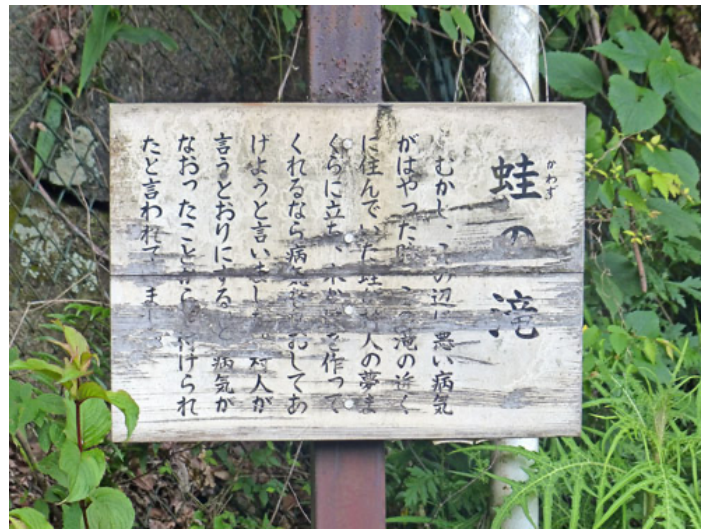 蛙の滝
かわず
むかし、この辺に悪い病気
がはやった この滝の近く
に住んでいた蛙が村人の夢ま
くらに立ち、 を作って
くれるなら病気をなおしてあ
げようと言いました。村人が
言うとおりにすると 病気が
なおったことから 付けられ
たと言われています。